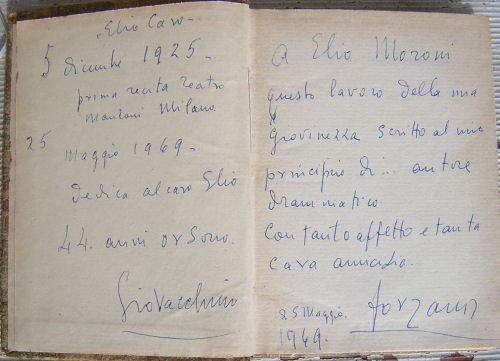 Elio Caro -
5 dicembre 1925 -
prima recita Teatro
Manzoni Milano
25
Maggio 1969 -
dedica al caro Elio
44. anni or sono.
Giovacchino
A Elio Moroni
questo lavoro della mia
giovinezza scritto al mio
principio di... autore
drammatico.
Con tanto affetto e tanta
cara amicizia.
25 Maggio.
1969.
Forzano